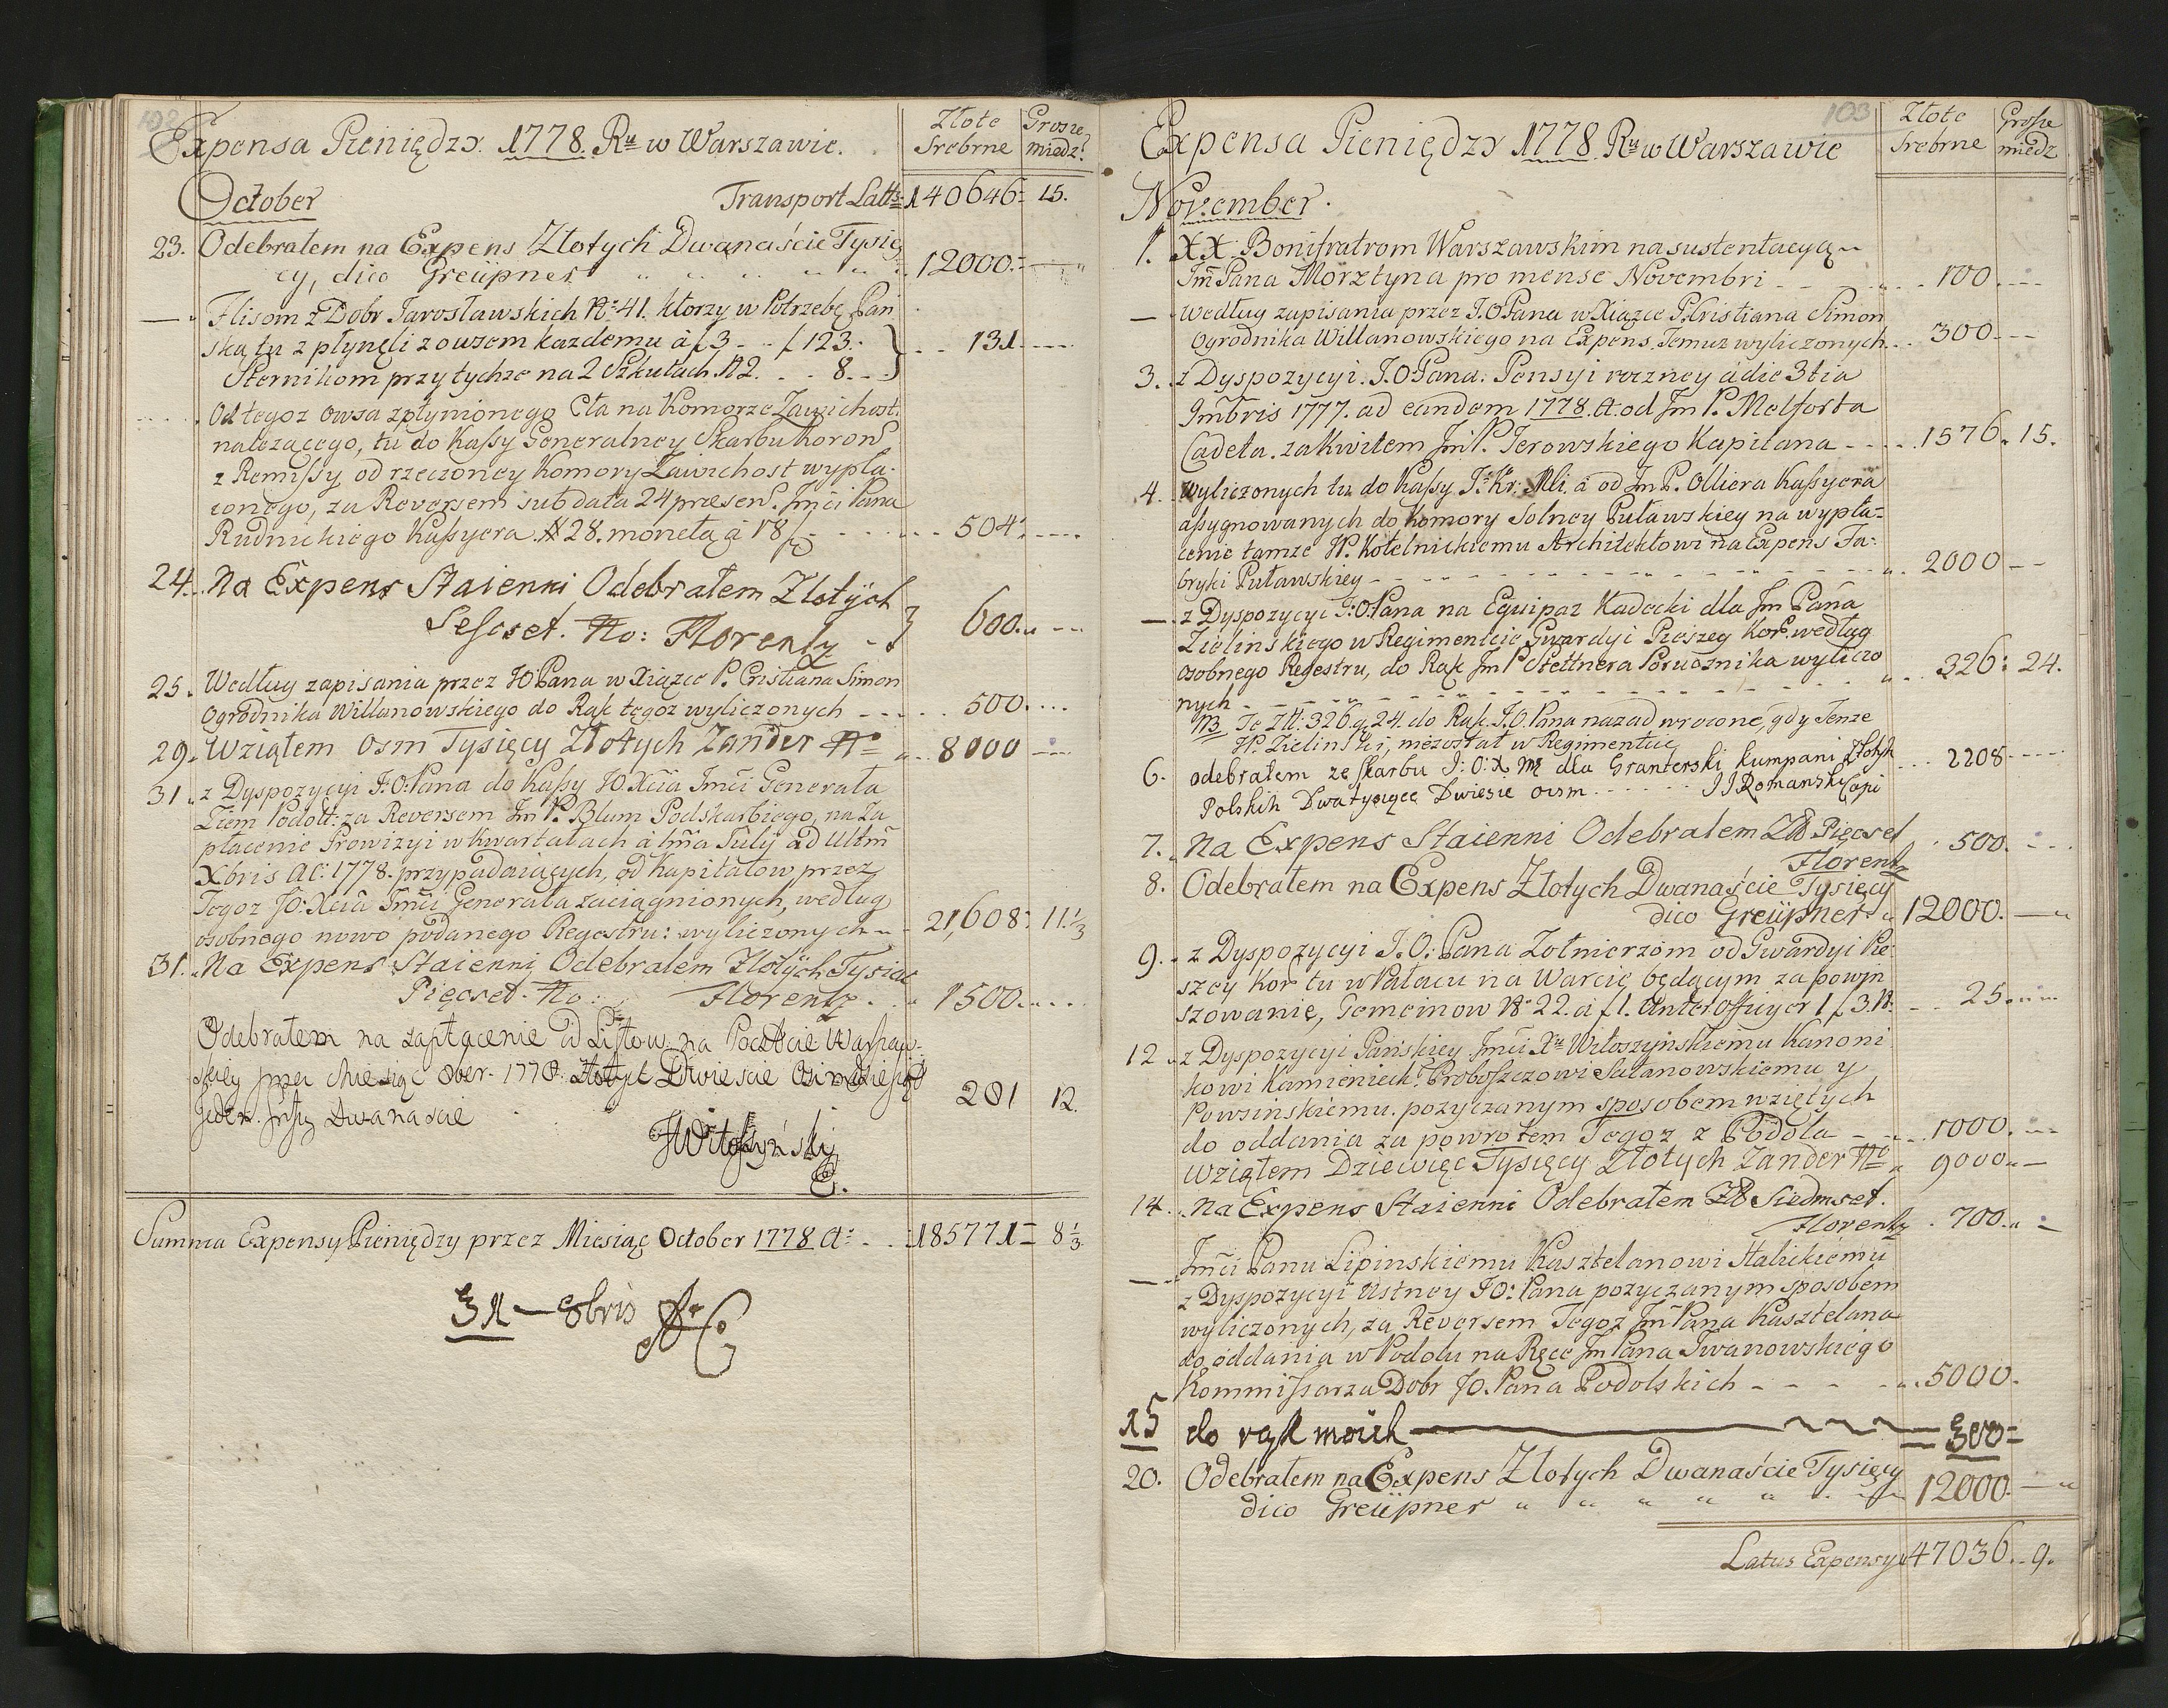 102
Expensa Pieniędzy. 1778. Ru w Warszawie.
Złote Srebrne
Grosze miedź:
October
Transport Latis 140646= 15.
23. Odebrałem na Expens Złotych Dwanaście Tysię
cy, dico Greüpner 12000.
— Flisom z Dobr Jarosławskich No 41. ktorzy w Potrzebę Pań
ską tu z płynęli z owsem każdemu à f 3 - - f 123.
131
Sternikom przy tychże na 2 Szkutach N 2. - - 8.
Od tegoz owsa zpłynionego Cła na Komorze Zawichost:
należącego, tu do Kassy Generalney Skarbu Koron
z Remissy od rzeczoney Komory Zawichost wypła-
conego, za Reversem sub data 24 præsen. Jmći Pana
Rudnickiego Kassyera # 28. monetą à 18 f 504.
24. Na Expens Staienni Odebralem Zlotych
Sescset. No: Florentz 600.
25. Według zapisania przez JO Pana w Xiążce P. Cristiana Simon
Ogrodnika Willanowskiego do Rąk tegoz wyliczonych 500.
29. Wziąłem Osm Tysięcy Złotych Zander 8000
31. z Dyspozycyi J:O:Pana do Kassy JO Xcia Jmći Generała
Ziem Podoll: za Reversem Jm P. Blum Podskarbiego, na Za
płacenie Prowizyi w Kwartałach à 1ma July ad Ultm
Xbris ac: 1778. przypadaiących, od Kapitałow przez
Tegoz JO: Xcia Jmći Generała zaciągnionych, według
osobnego nowo podanego Regestru: wyliczonych 21,608: 11 1/3
31. Na Expens Staienni Odebralem Zlotych Tysiac
Pięcset. No: Florentz. 1500.
Odebrałem na zapłacenie od Listow na Poczcie Warszaw-
skiey przez Miesiąc 8ber. 1778. Złotych Dwiescie Osimdziesąt
Jeden. Groszy Dwanascie 281 12.
JWitoszyński
Summa Expensy Pieniędzy przez Miesiąc October 1778 A: 185771= 8 1/3
31 — 8bris
103
Expensa Pieniędzy 1778. Ru w Warszawie
Złote Srebrne
Grosze miedź
November.
1. XX. Bonifratrom Warszawskim na sustentacyą
Jm Pana Morsztyna pro mense Novembri 100.
— Według zapisania przez J.O Pana w Xiązce P. Cristiana Simon
Ogrodnika Willanowskiego na Expens Temuz wyliczonych 300.
3. z Dyspozycyi J.O Pana. Pensyi roczney à die 3tia
9mbris 1777. ad eundem 1778. A. od Jm P. Melforta
Cadeta. za Kwitem Jm P. Jerowskiego Kapitana 1576. 15.
4. Wyliczonych tu do Kassy J: Kr: Mći, à od Jm P. Olliera Kassyera
assygnowanych do Komory Solney Puławskiey na wypła-
cenie tamże W. Kotelnickiemu Architektowi na Expens Fa-
bryki Puławskiey 2000
— z Dyspozycyi J:O:Pana na Equipaz Kadecki dla Jm Pana
Zielinskiego w Regimencie Gwardyi Pieszey Kor. według
osobnego Regestru, do Rąk Jm P Stettnera Porucznika wyliczo
nych 326: 24.
NB Te Złł: 326 g 24. do Rąk J.O. Pana nazad wrocone, gdy Tenze
W. Zielinski, niezostał w Regimentcie
6. odebrałem ze skarbu J: O: X Mć dla Granterski kumpani Złotych
Polskih Dwatysięce Dwiesie oism JJRomanski Capi 2208
7. Na Expens Staienni Odebralem Zł Pięcset
Florentz 500.
8. Odebrałem na Expens Złotych Dwanaście Tysięcy
dico Greüpner 12000.
9. z Dyspozycyi J.O: Pana Zołnierzom od Gwardyi Pie-
szey Kor tu w Pałacu na Warcie będącym za powin
szowanie, Gemeinow No 22. à f 1. Unter Officyer 1 f 3. 25.
12. z Dyspozycyi Pańskiey Jmći Xu Witoszyńskiemu Kanoni
kowi Kamienieck: Proboszczowi Satanowskiemu y
Powsinskiemu. pozyczanym sposobem wziętych
do oddania za powrotem Tegoz z Podola 1000.
Wziąłem Dziewięć Tysięcy Złotych Zander 9000
14. Na Expens Staienni Odebralem Zł Siedmset.
Florentz 700.
— Jmći Panu Lipinskiemu Kasztelanowi Halickiemu
z Dyspozycyi Ustney JO: Pana pozyczanym sposobem
wyliczonych, za Reversem Tegoz Jm Pana Kasztelana
do oddania w Podolu na Ręce Jm Pana Iwanowskiego
Kommissarza Dobr JO. Pana Podolskich 5000.
15 do rąk moich 300=
20. Odebrałem na Expens Złotych Dwanaście Tysięcy
dico Greüpner 12000.
Latus Expensy 47036. 9.